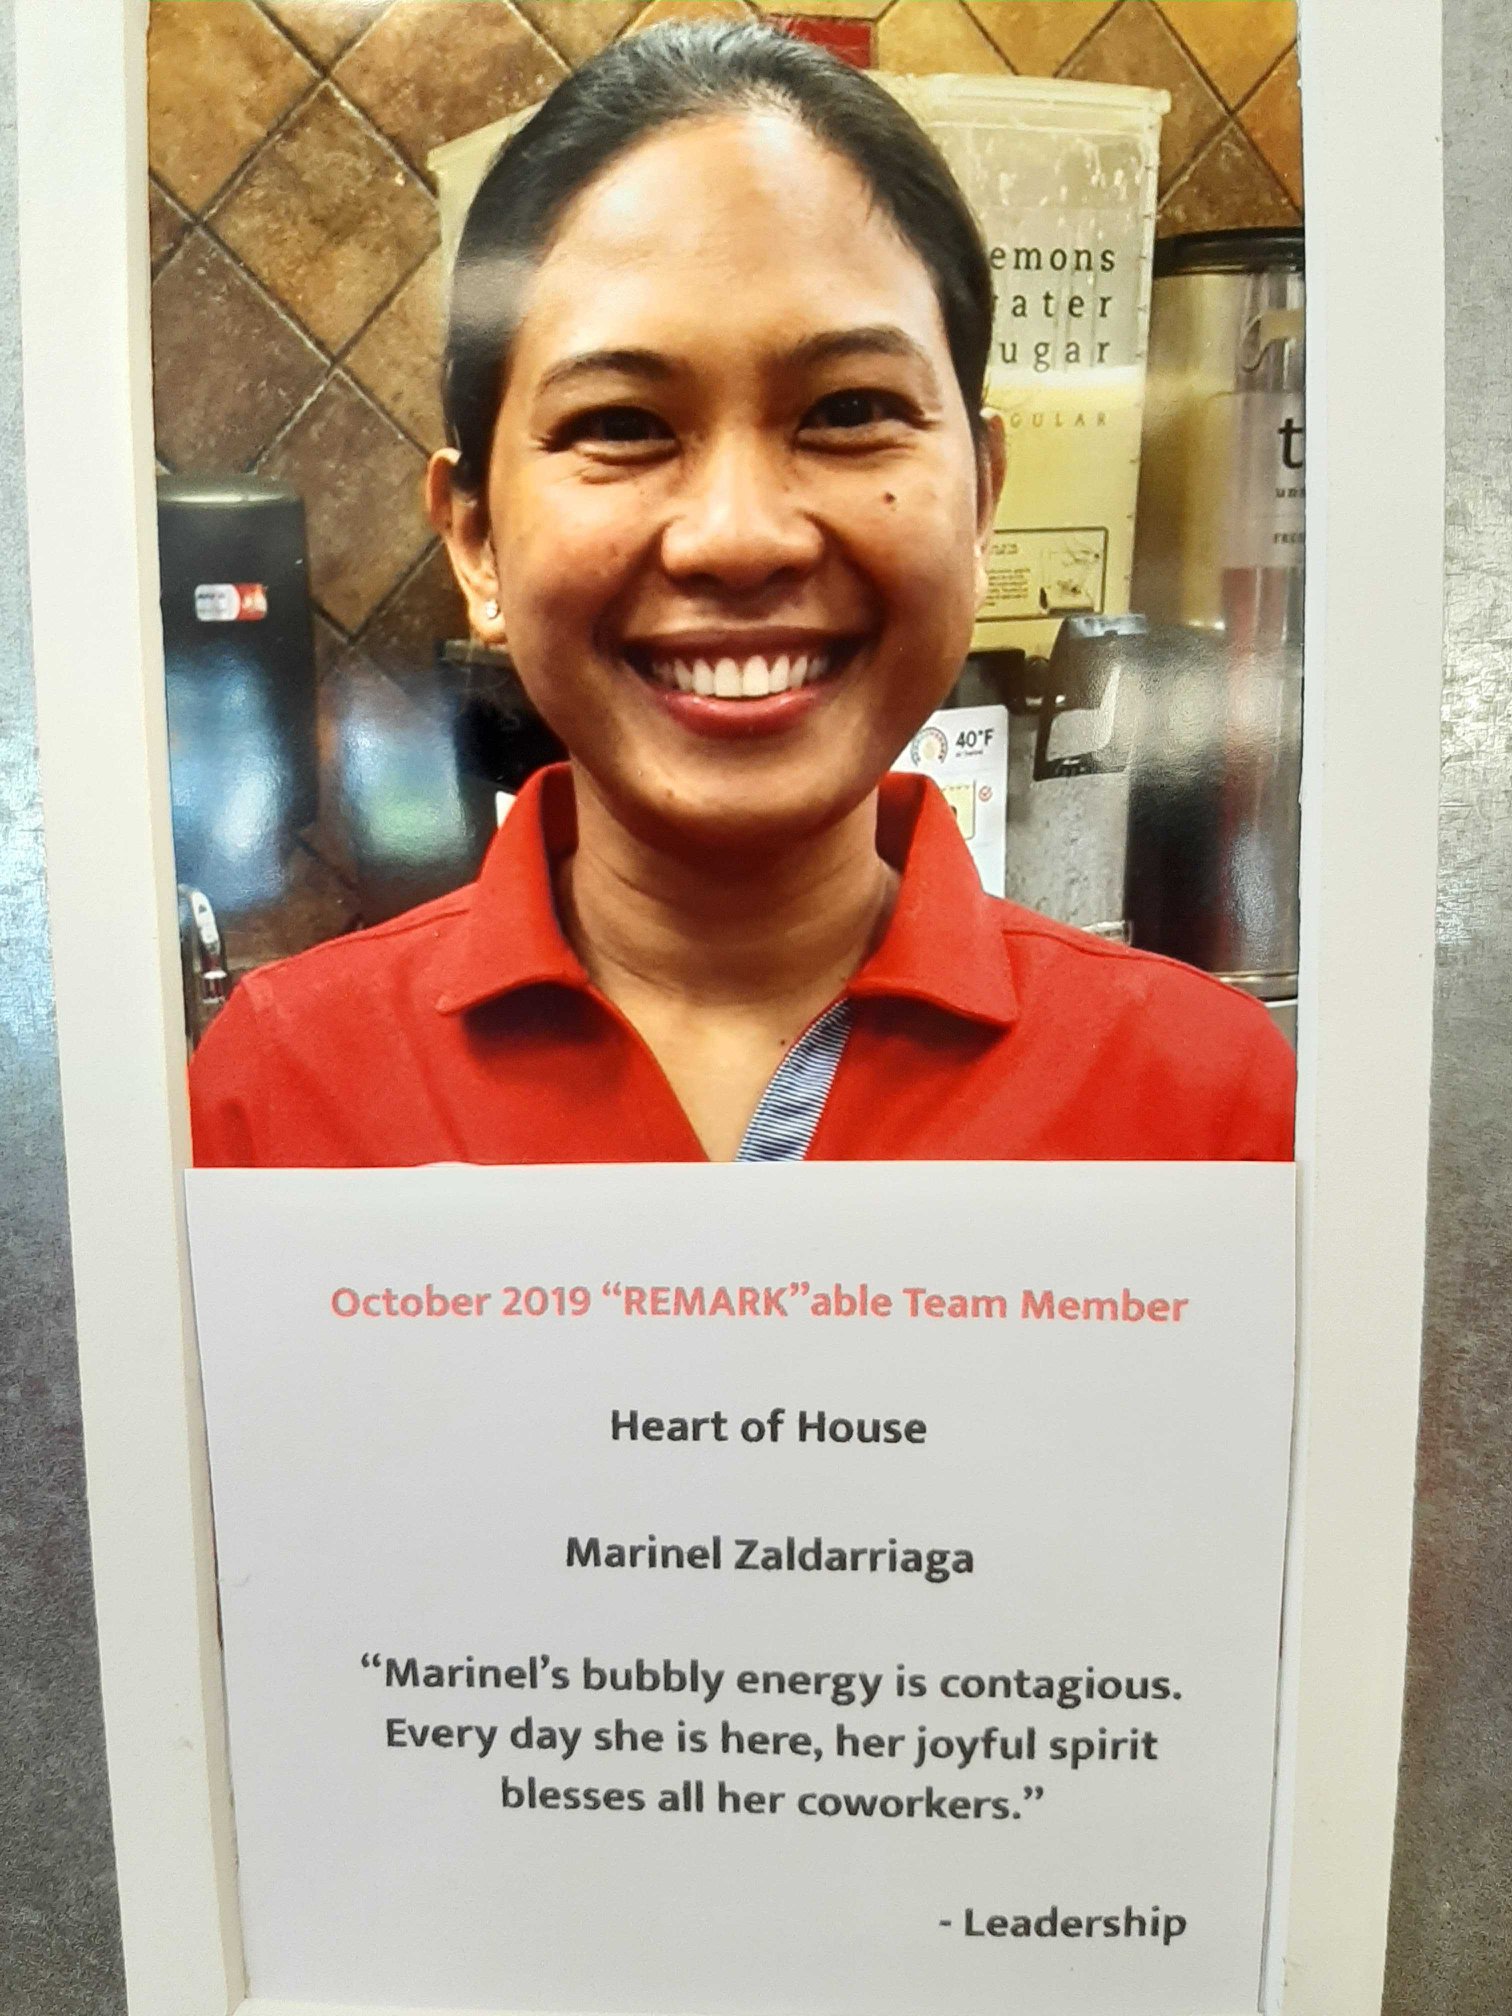 emons
ater
ugar
GULAR
t
40°F
October 2019 “REMARK”able Team Member
Heart of House
Marinel Zaldarriaga
“Marinel’s bubbly energy is contagious.
Every day she is here, her joyful spirit
blesses all her coworkers.”
- Leadership